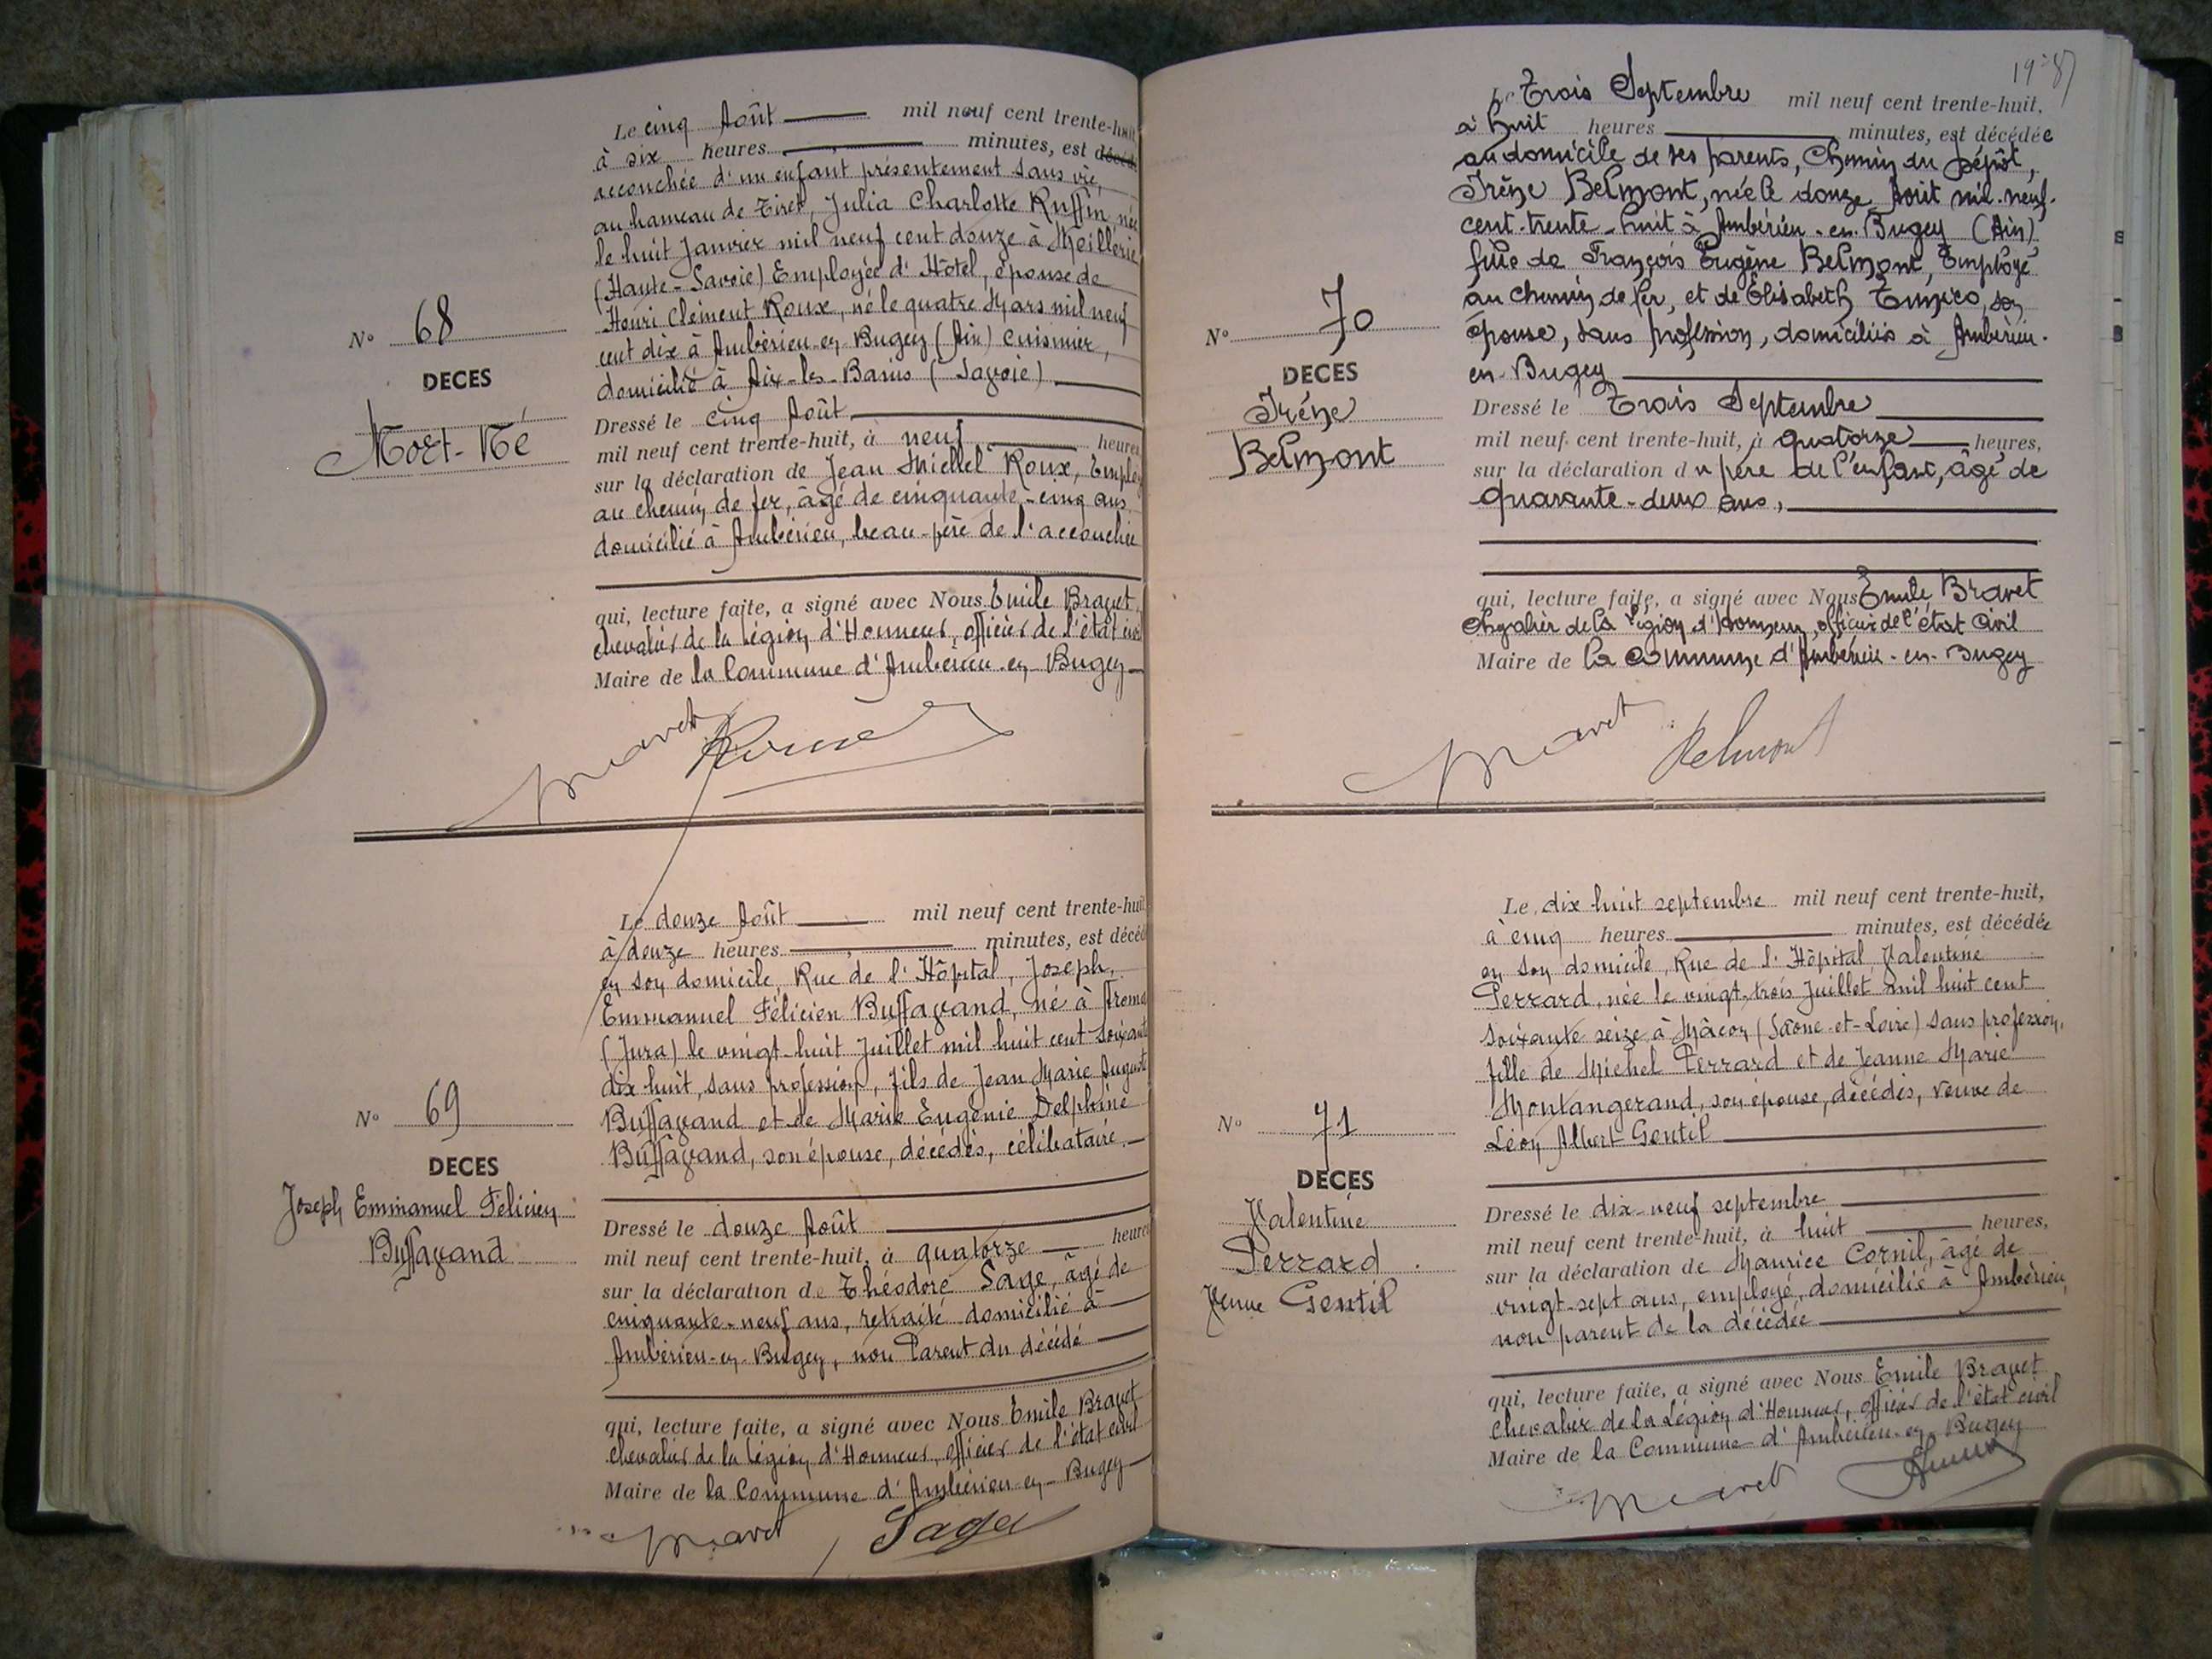 Le cinq Août mil neuf cent trente-huit
à six heures minutes, est décédé
accouchée d'un enfant présentement sans vie,
au hameau de Tiret, Julia Charlotte Ruffin née
le huit Janvier mil neuf cent douze à Meillerie
(Haute-Savoie) Employée d'Hôtel, épouse de
Henri Clément Roux, né le quatre Mars mil neuf
cent dix à Ambérieu-en-Bugey (Ain) cuisinier,
domicilié à Aix-les-Bains (Savoie)
N° 68
DECES
Mort-Né
Dressé le cinq Août
mil neuf cent trente-huit, à neuf heures
sur la déclaration de Jean Michel Roux, Employ
au chemin de fer, âgé de cinquante-cinq ans
domicilié à Ambérieu, beau-père de l'accouchée
qui, lecture faite, a signé avec Nous Emile Bravet
chevalier de la Légion d'Honneur, officier de l'état civil
Maire de la Commune d'Ambérieu-en-Bugey
Le douze Août mil neuf cent trente-huit
à douze heures minutes, est décédé
en son domicile, Rue de l'Hôpital, Joseph,
Emmanuel Félicien Buffavand, né à Aroma
(Jura) le vingt-huit Juillet mil huit cent soixante
dix huit, sans profession, fils de Jean Marie Auguste
Buffavand et de Marie Eugénie Delphine
Buffavand, son épouse, décédés, célibataire.
N° 69
DECES
Joseph Emmanuel Félicien
Buffavand
Dressé le douze Août
mil neuf cent trente-huit, à quatorze heures
sur la déclaration de Théodore Sage, âgé de
cinquante-neuf ans, retraité domicilié à
Ambérieu-en-Bugey, non Parent du décédé
qui, lecture faite, a signé avec Nous Emile Bravet
chevalier de la Légion d'Honneur, officier de l'état civil
Maire de la Commune d'Ambérieu-en-Bugey
Bravet Sage
Le Trois Septembre mil neuf cent trente-huit,
à huit heures minutes, est décédée
au domicile de ses parents, Chemin du Dépôt,
Irène Belmont, née le douze Août mil-neuf-
cent-trente-huit à Ambérieu-en-Bugey (Ain)
fille de François Eugène Belmont, Employé
au chemin de fer, et de Elisabeth son
épouse, sans profession, domiciliés à Ambérieu-
en-Bugey
N° 70
DECES
Irène
Belmont
Dressé le Trois Septembre
mil neuf cent trente-huit, à quatorze heures,
sur la déclaration du père de l'enfant, âgé de
quarante-deux ans,
qui, lecture faite, a signé avec Nous Emile Bravet
Chevalier de la Légion d'honneur, officier de l'état civil
Maire de la Commune d'Ambérieu-en-Bugey
Bravet Belmont
Le dix huit septembre mil neuf cent trente-huit,
à cinq heures minutes, est décédée
en son domicile, Rue de l'Hôpital, Valentine
Perrard, née le vingt-trois Juillet mil huit cent
soixante seize à Mâcon (Saône-et-Loire) sans profession,
fille de Michel Perrard et de Jeanne Marie
Montangerand, son épouse, décédés, veuve de
Léon Albert Gentil
N° 71
DECES
Valentine
Perrard
Veuve Gentil
Dressé le dix-neuf septembre
mil neuf cent trente-huit, à huit heures,
sur la déclaration de Maurice Cornil, âgé de
vingt-sept ans, employé, domicilié à Ambérieu,
non parent de la décédée
qui, lecture faite, a signé avec Nous Emile Bravet
Chevalier de la Légion d'Honneur, officier de l'état civil
Maire de la Commune d'Ambérieu-en-Bugey
Bravet